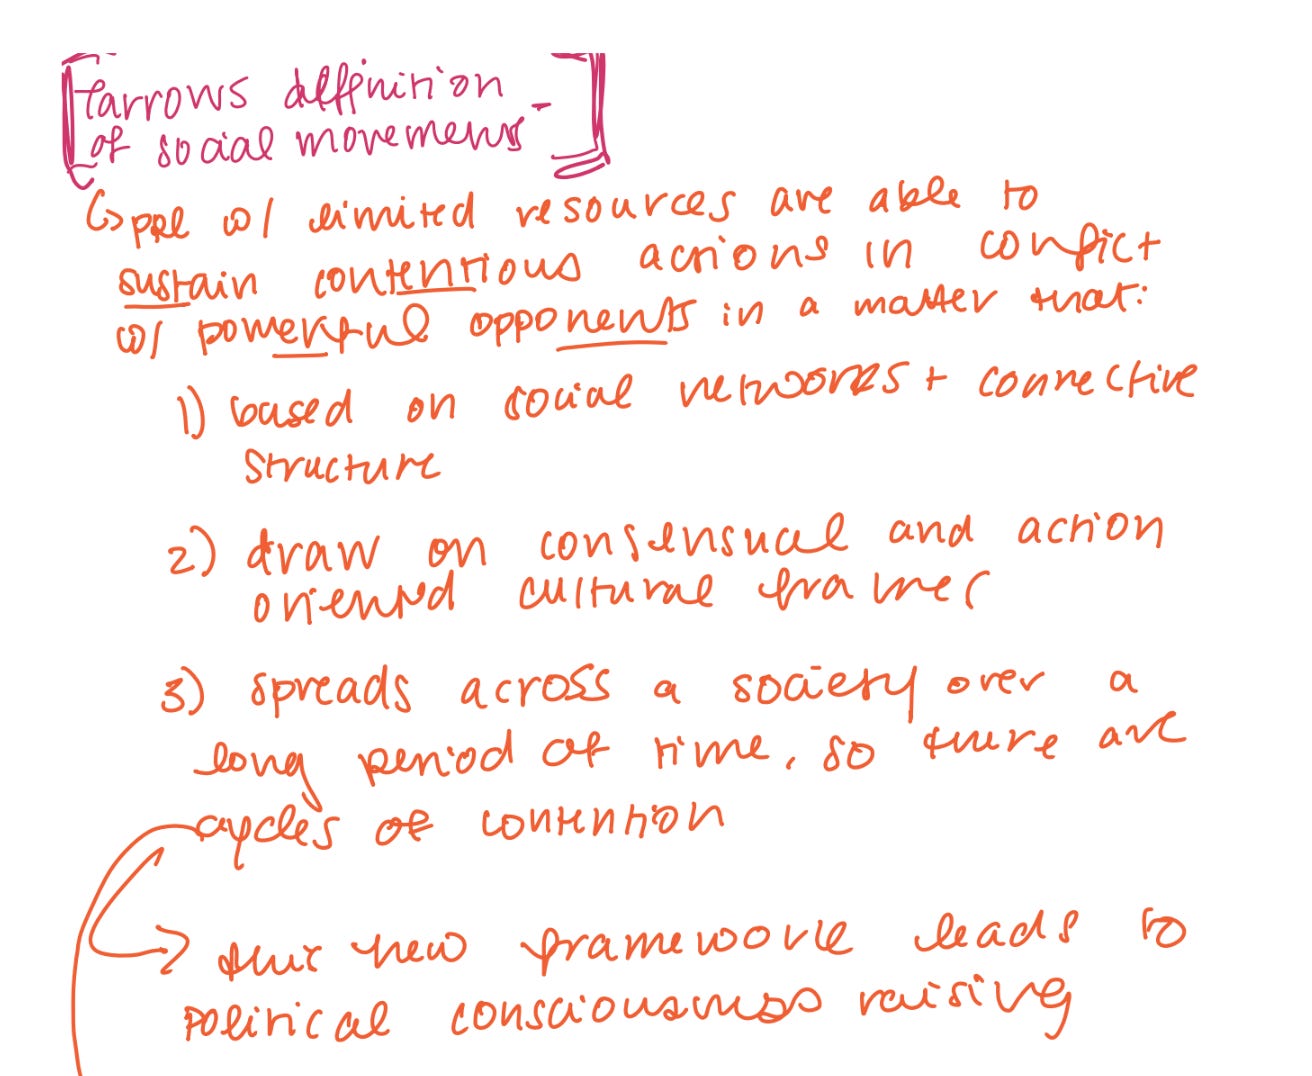 Tarrows deffinition
of social movements -
↳ ppl w/ limited resources are able to
sustain contentious actions in conflict
w/ powerful opponents in a matter that:
1) based on social networks + connective
structure
2) draw on consensual and action
oriented cultural frames
3) spreads across a society over a
long period of time, so there are
cycles of contention
→ this new framework leads to
political consciousness raising